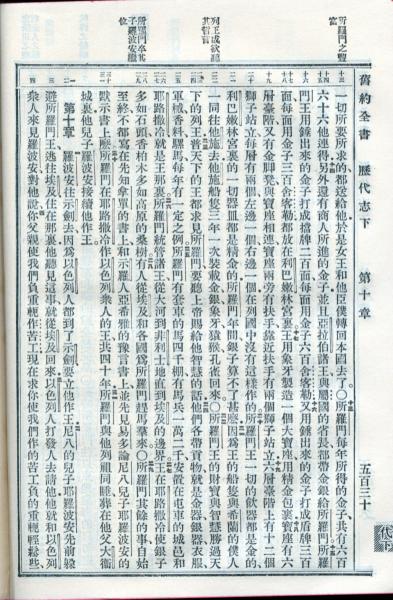 舊約全書 歷代志下 第十章 五百三十
所羅門之豐富
一切所要所求的都送給他於是女王和他臣僕轉回本國去了○所羅門每年所得的金子共有六百
六十六他連得另外還有商人所進的金子並且亞拉伯諸王與屬國的客長都帶金銀給所羅門所羅
門王用錘出來的金子打成擋牌二百面每面用金子六百舍客勒又用錘出來的金子打成盾牌三百
面每面用金子三百舍客勒都放在利巴嫩林宮裏王用象牙製造一個大寶座用精金包裹寶座有六
層臺階又有金脚凳與寶座相連寶座兩旁有扶手靠近扶手有兩個獅子站立六層臺階上有十二個
獅子站立每層有兩個左邊一個右邊一個在列國中沒有這樣作的所羅門王一切的飲器都是金的
利巴嫩林宮裏的一切器皿都是精金的所羅門年間銀子算不了甚麽因爲王的船隻與希蘭的僕人
一同往他施去他施船隻三年一次裝載金銀象牙猿猴孔雀回來○所羅門王的財寶與智慧勝過天
列王咸欲聽其智言
下的列王普天下的王都求見所羅門要聽上帝賜給他智慧的話他們各帶貢物就是金器銀器衣服
軍械香料騾馬每年有一定之例所羅門有套車的馬四千棚有馬兵一萬二千安置在屯車的城邑和
耶路撒冷就是王那裏所羅門統管諸王從大河到非利士地直到埃及的邊界王在耶路撒冷使銀子
多如石頭香柏木多如高原的桑樹有人從埃及和各國爲所羅門趕馬羣來○所羅門其餘的事自始
所羅門卒其子羅波安繼位
至終不都寫在先知拿單的書上和示羅人亞希雅的豫言書上並先見易多論尼八兒子耶羅波安的
默示書上麽所羅門在耶路撒冷作以色列衆人的王共四十年所羅門與他列祖同睡葬在他父大衞
城裏他兒子羅波安接續他作王
第十章 羅波安往示劍去因爲以色列人都到了示劍要立他作王尼八的兒子耶羅波安先前躲
避所羅門王逃往埃及住在那裏他聽見這事就從埃及回來以色列人打發人去請他他就和以色列
衆人來見羅波安對他說你父親使我們負重軛作苦工現在求你使我們作的苦工負的重軛輕鬆些
代下